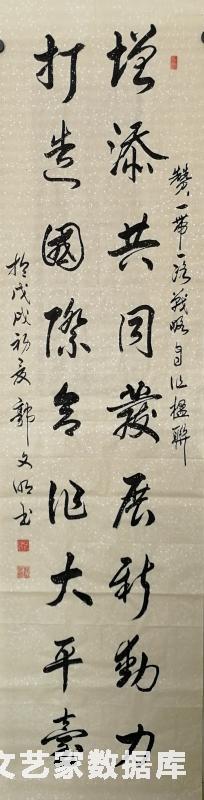 赞一带一路战略自作楹联
增添共同發展新動力
打造國際合作大平臺
於戊戌初夏郭文明书
文艺家数据库